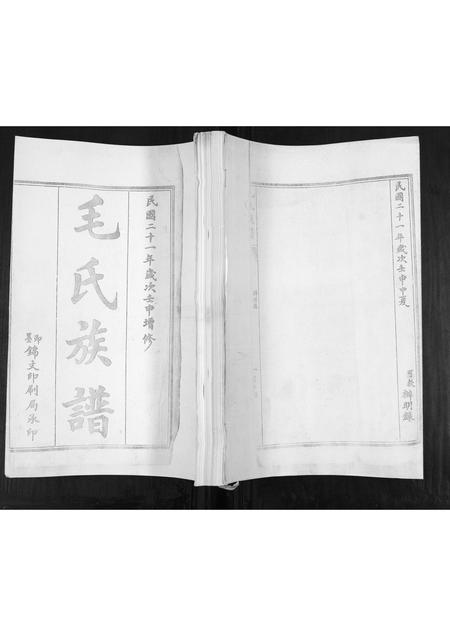 民國二十一年歲次壬申增修
毛氏族譜
錦文印刷局承印
民國二十一年歲次壬申中夏